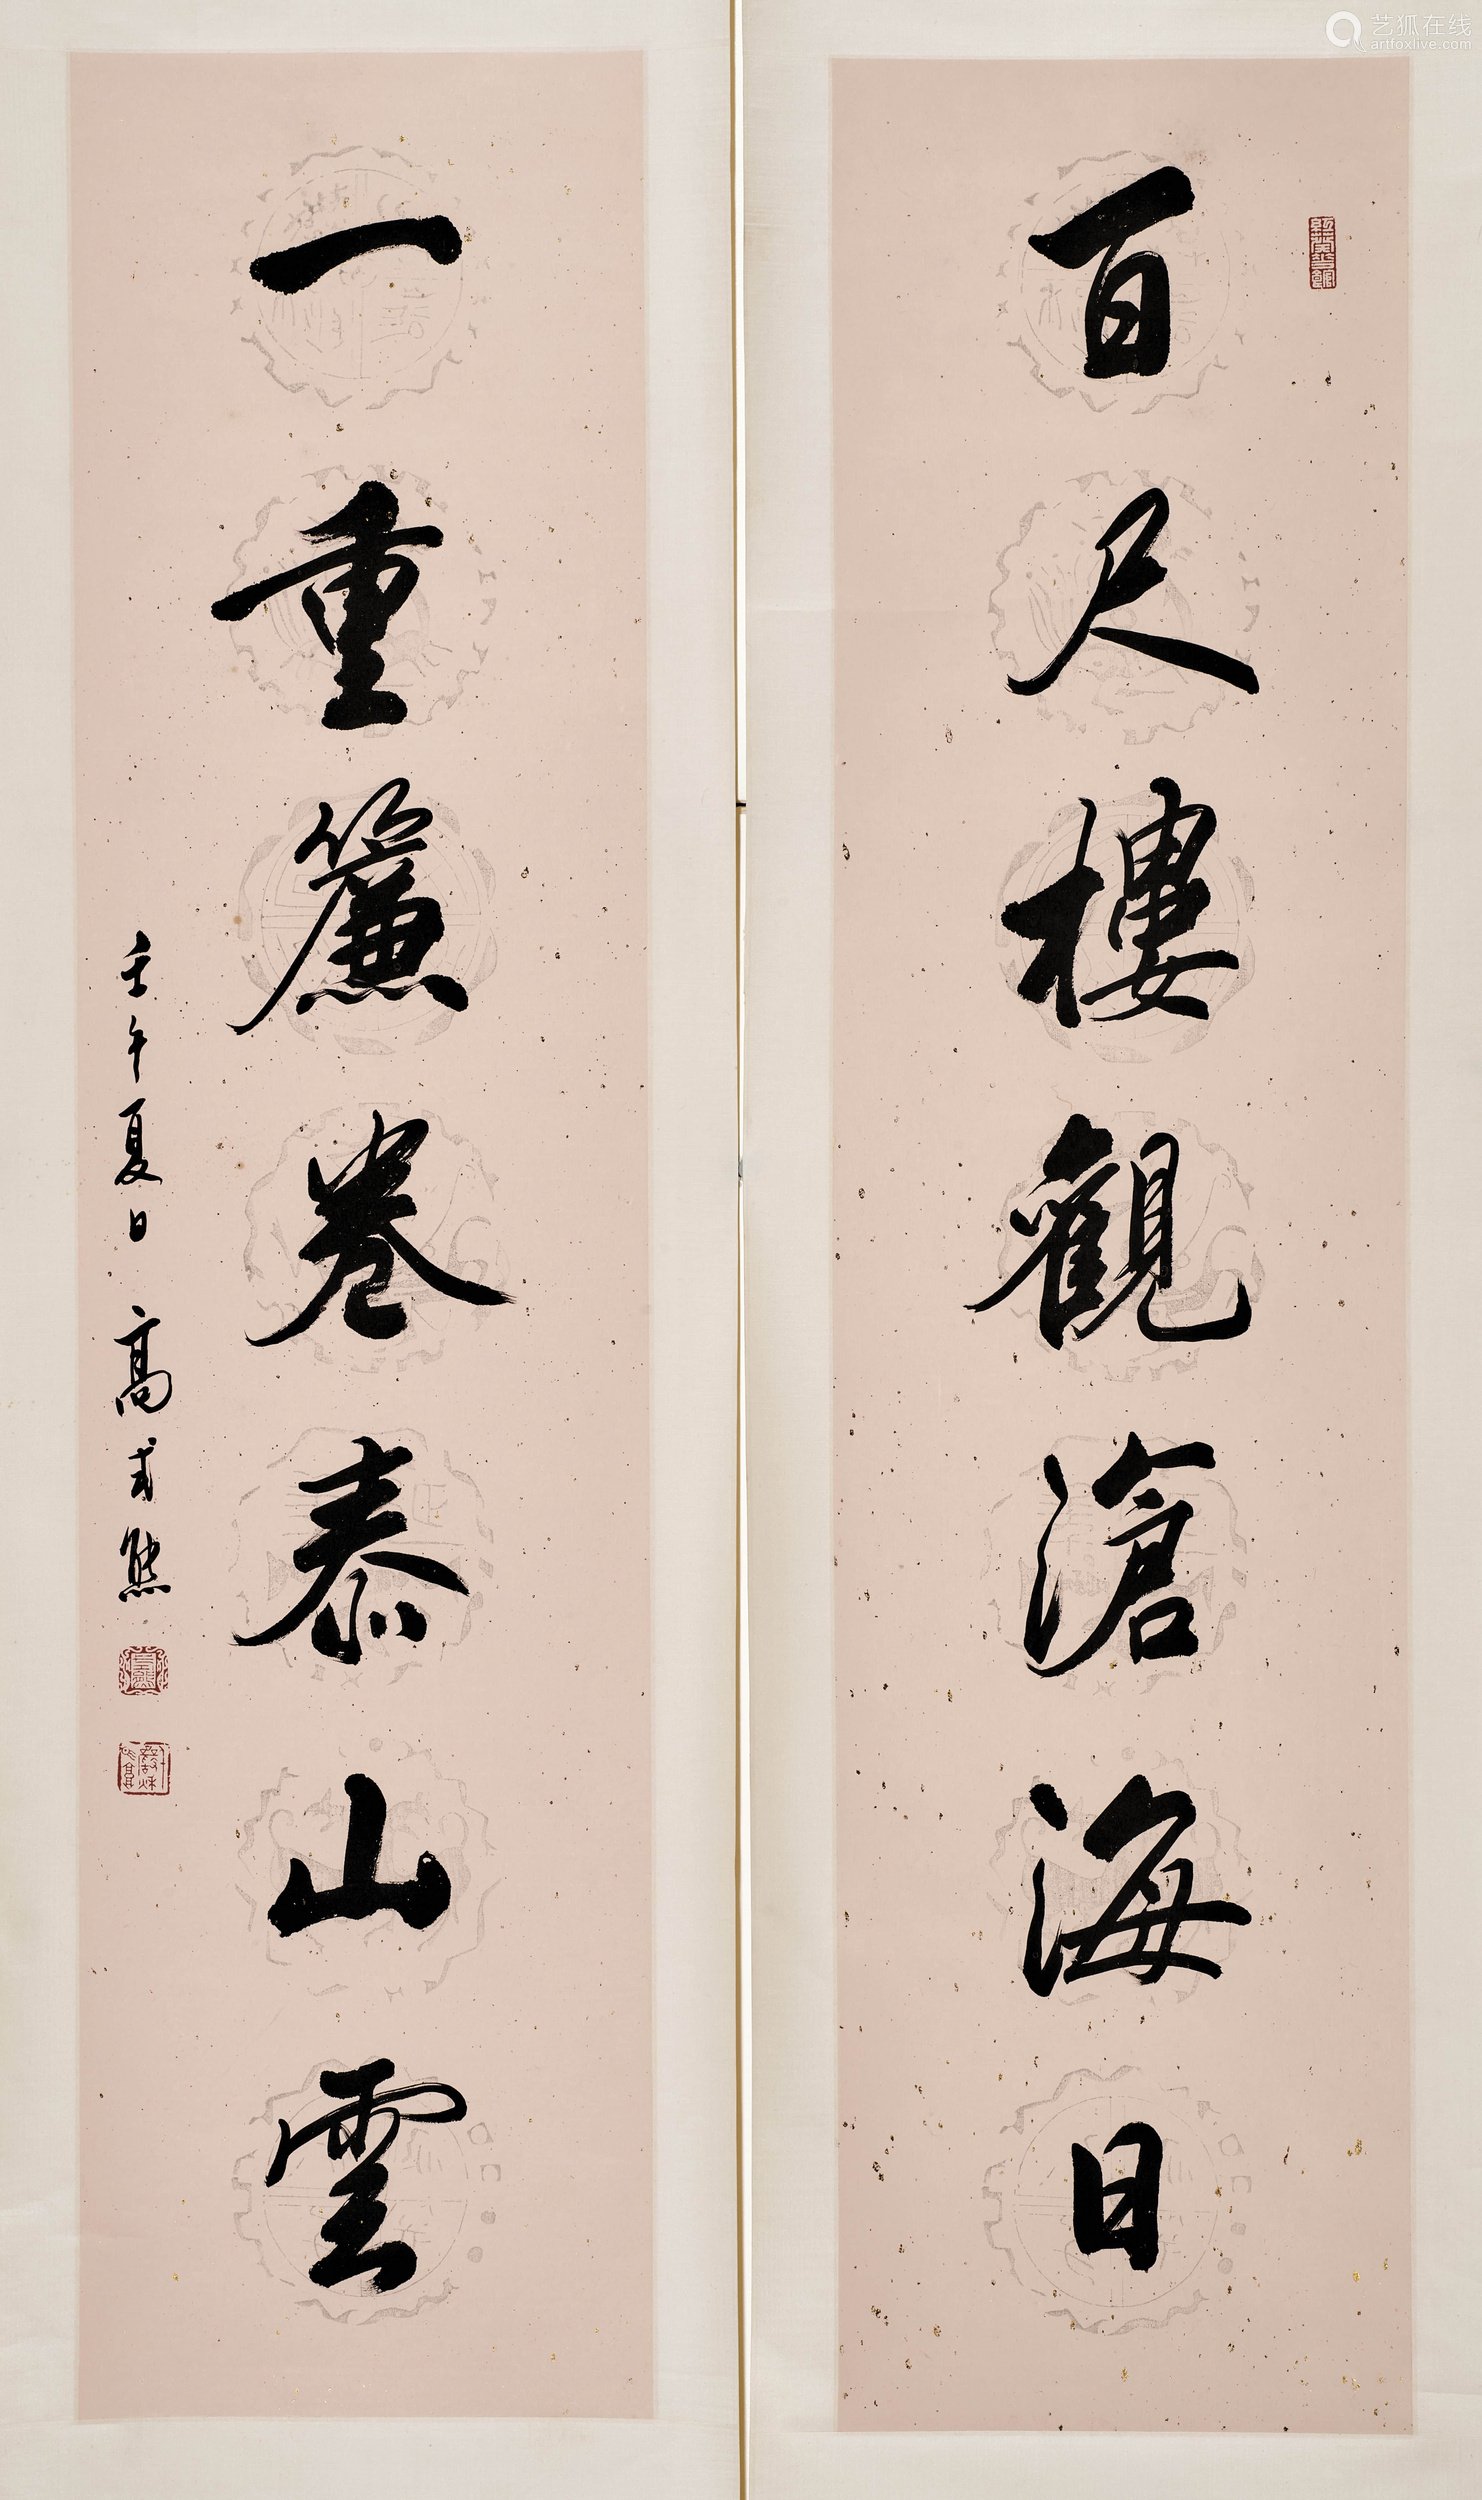 百尺樓觀滄海日
一重簾卷泰山雲
壬午夏日 高式熊
艺狐在线
artfoxlive.com